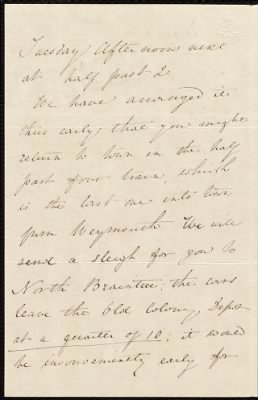 Tuesday afternoon next
at half past 2
We have arranged it
thus early that you might
return to town in the half
past four train which
is the last one into town
from Weymouth. We will
send a sleigh for you to
North Braintree; the cars
leave the Old Colony Depot
at a quarter of 10; it would
be inconveniently early for